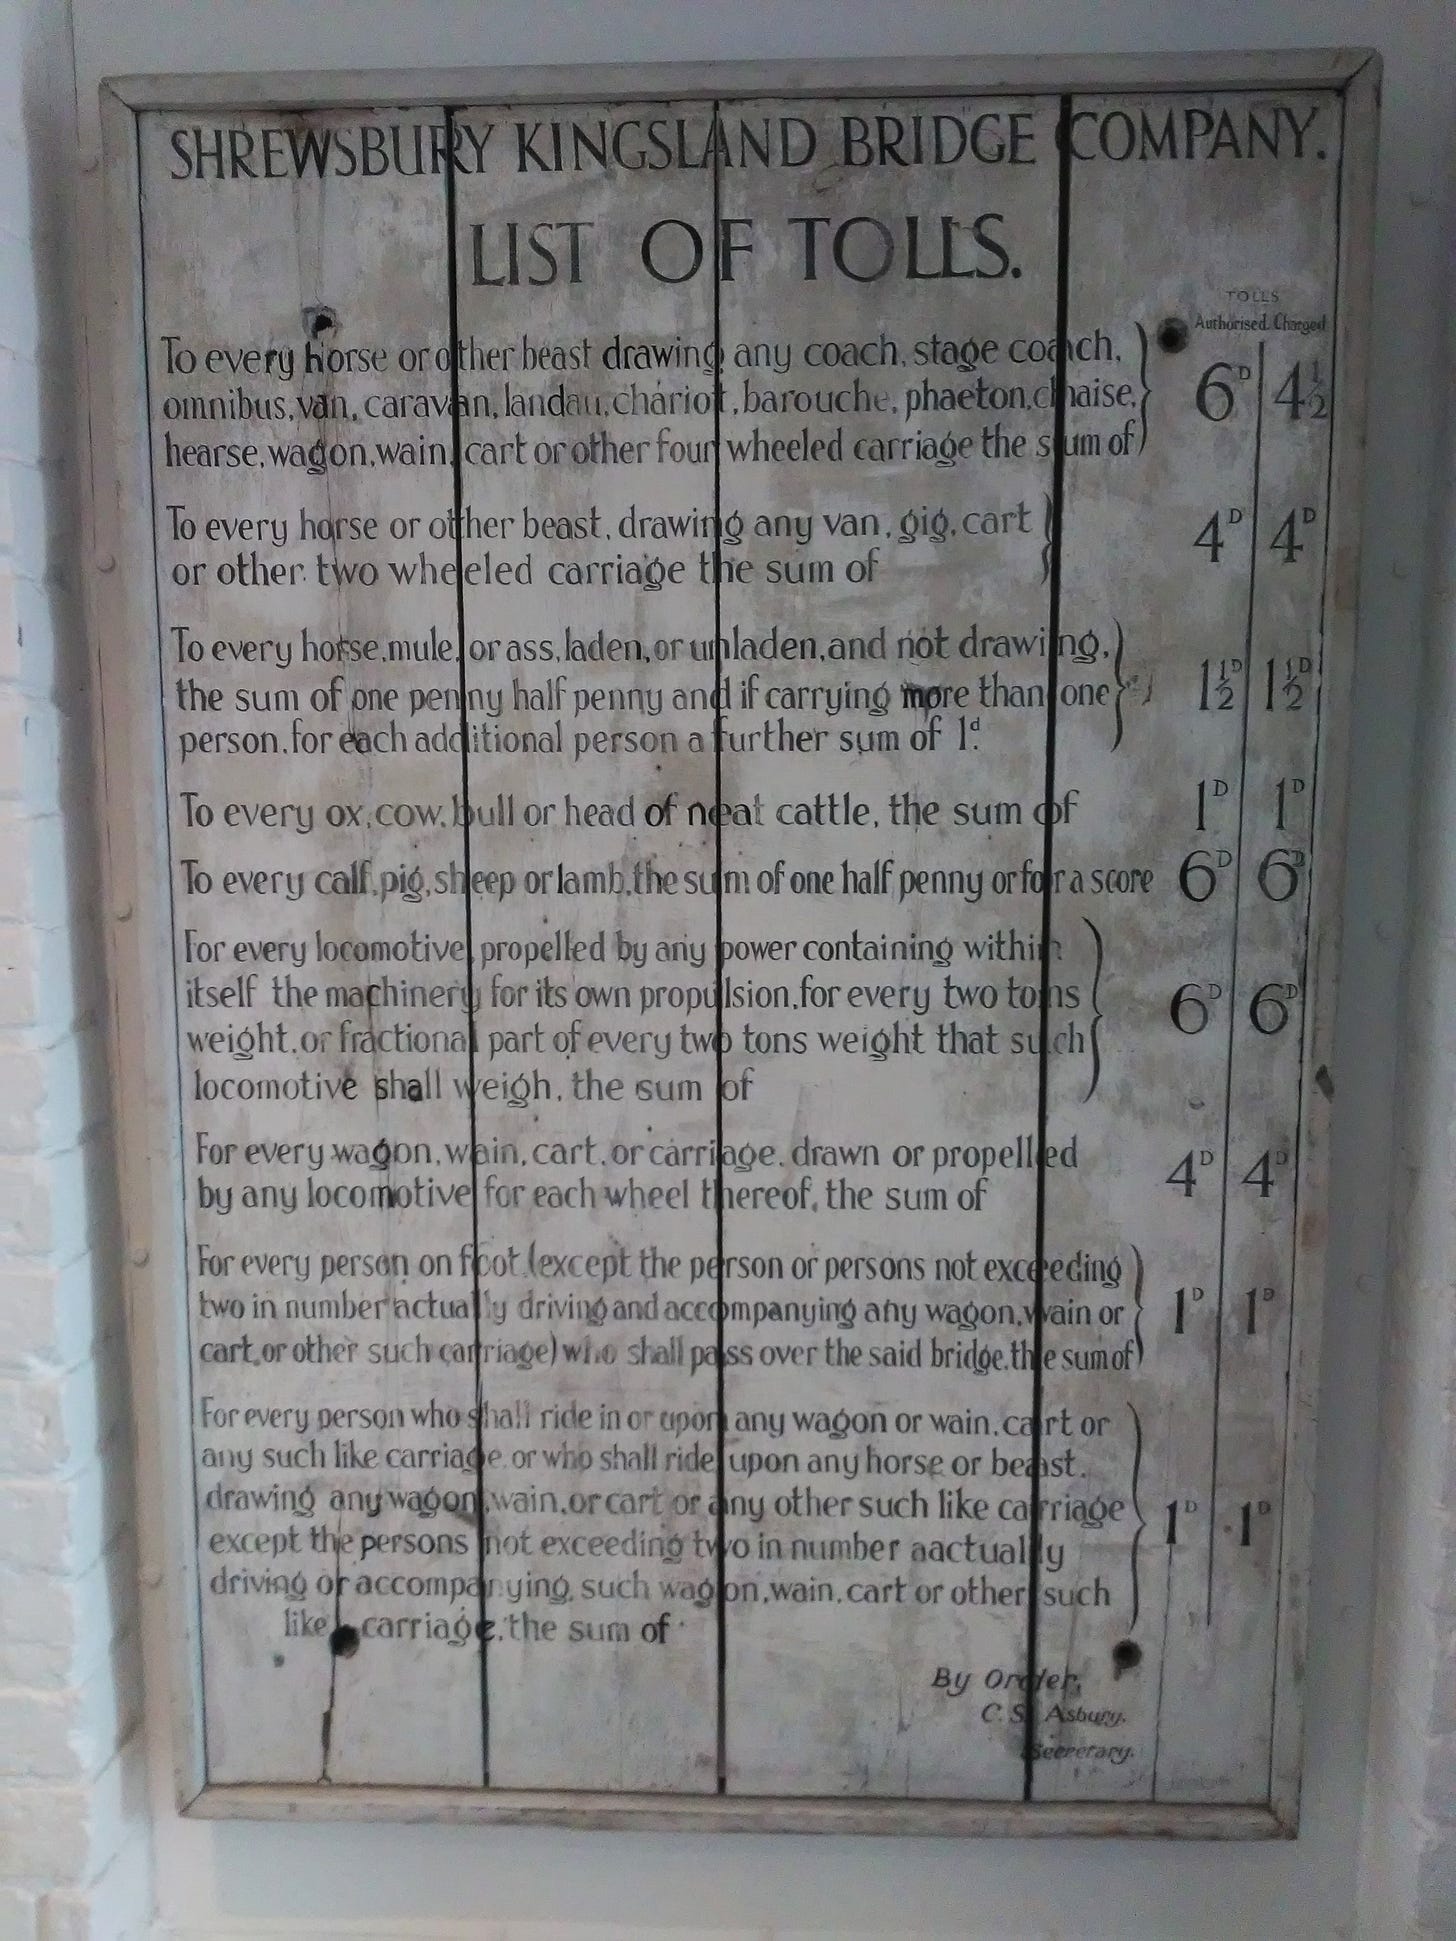 SHREWSBURY KINGSLAND BRIDGE COMPANY.
LIST OF TOLLS.
TOLLS
Authorised. Charged
To every horse or other beast drawing any coach, stage coach,
omnibus, van, caravan, landau, chariot, barouche, phaeton, chaise,
hearse, wagon, wain, cart or other four wheeled carriage the sum of
6D 4½
To every horse or other beast, drawing any van, gig, cart
or other two wheeled carriage the sum of
4D 4D
To every horse, mule, or ass, laden, or unladen, and not drawing,
the sum of one penny half penny and if carrying more than one
person, for each additional person a further sum of 1d.
1½D 1½D
To every ox, cow, bull or head of neat cattle, the sum of 1D 1D
To every calf, pig, sheep or lamb, the sum of one half penny or for a score 6D 6D
For every locomotive, propelled by any power containing within
itself the machinery for its own propulsion, for every two tons
weight, or fractional part of every two tons weight that such
locomotive shall weigh, the sum of
6D 6D
For every wagon, wain, cart, or carriage, drawn or propelled
by any locomotive for each wheel thereof, the sum of
4D 4D
For every person on foot, (except the person or persons not exceeding
two in number actually driving and accompanying any wagon, wain or
cart, or other such carriage) who shall pass over the said bridge, the sum of
1D 1D
For every person who shall ride in or upon any wagon or wain, cart or
any such like carriage, or who shall ride, upon any horse or beast,
drawing any wagon, wain, or cart or any other such like carriage
except the persons not exceeding two in number aactually
driving or accompanying, such wagon, wain, cart or other such
like carriage, the sum of
1D 1D
By Order,
C. S. Asbury,
Secretary.